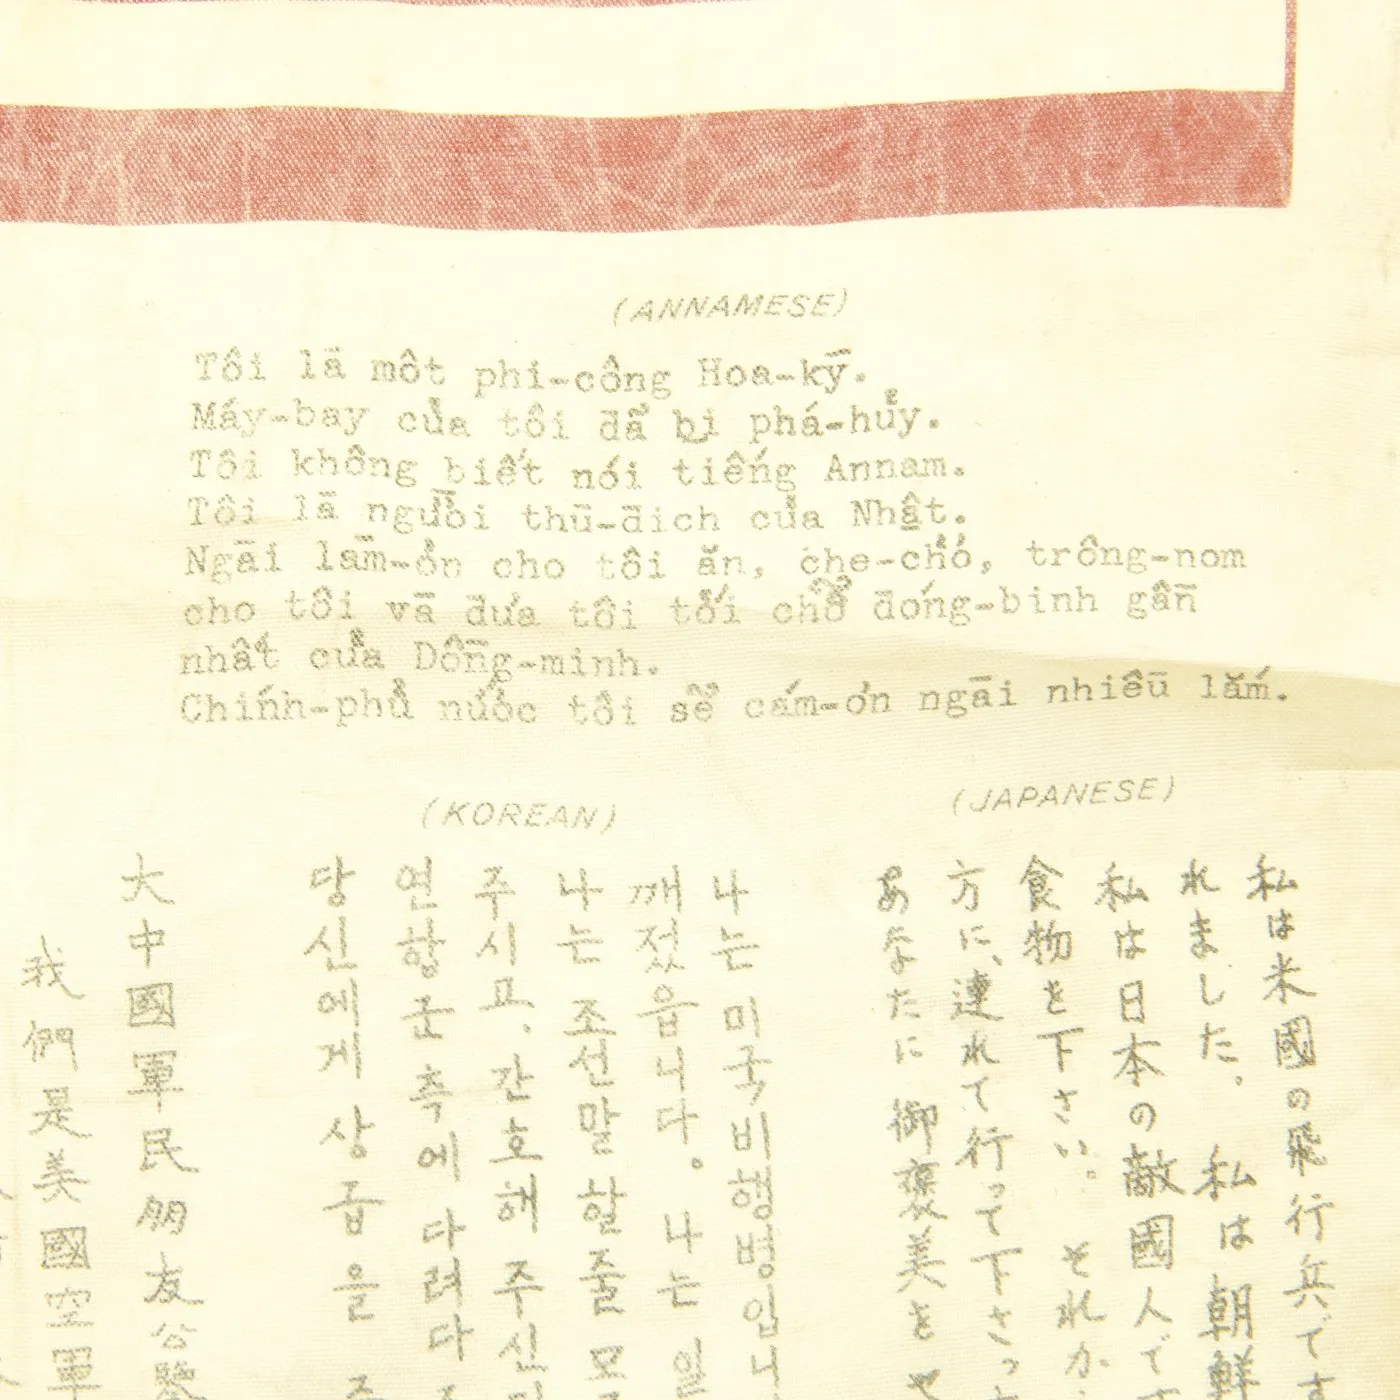 (ANNAMESE)
Tôi lā một phi-công Hoa-kȳ.
Máy-bay của tôi đã bị phá-hủy.
Tôi không biết nói tiếng Annam.
Tôi lā người thū-đich của Nhật.
Ngāi lām-ơn cho tôi ăn, che-chở, trông-nom
cho tôi vā đưa tôi tới chỗ đóng-binh gần
nhất của Đồng-minh.
Chính-phủ nước tôi sẽ cám-ơn ngāi nhiều lắm.
(JAPANESE)
私は米國の飛行兵です
れました。私は朝鮮
私は日本の敵國人で
食物を下さい。それか
方に、連れて行って下さっ
あなたに御褒美を
(KOREAN)
나는 미국 비행병입니
깨졌읍니다。나는 일
나는 조선말 할줄 모
주시고. 간호해 주신
연합군측에 다려다
당신에게 상급을
大中國軍民朋友公鑒
我們是美國空軍